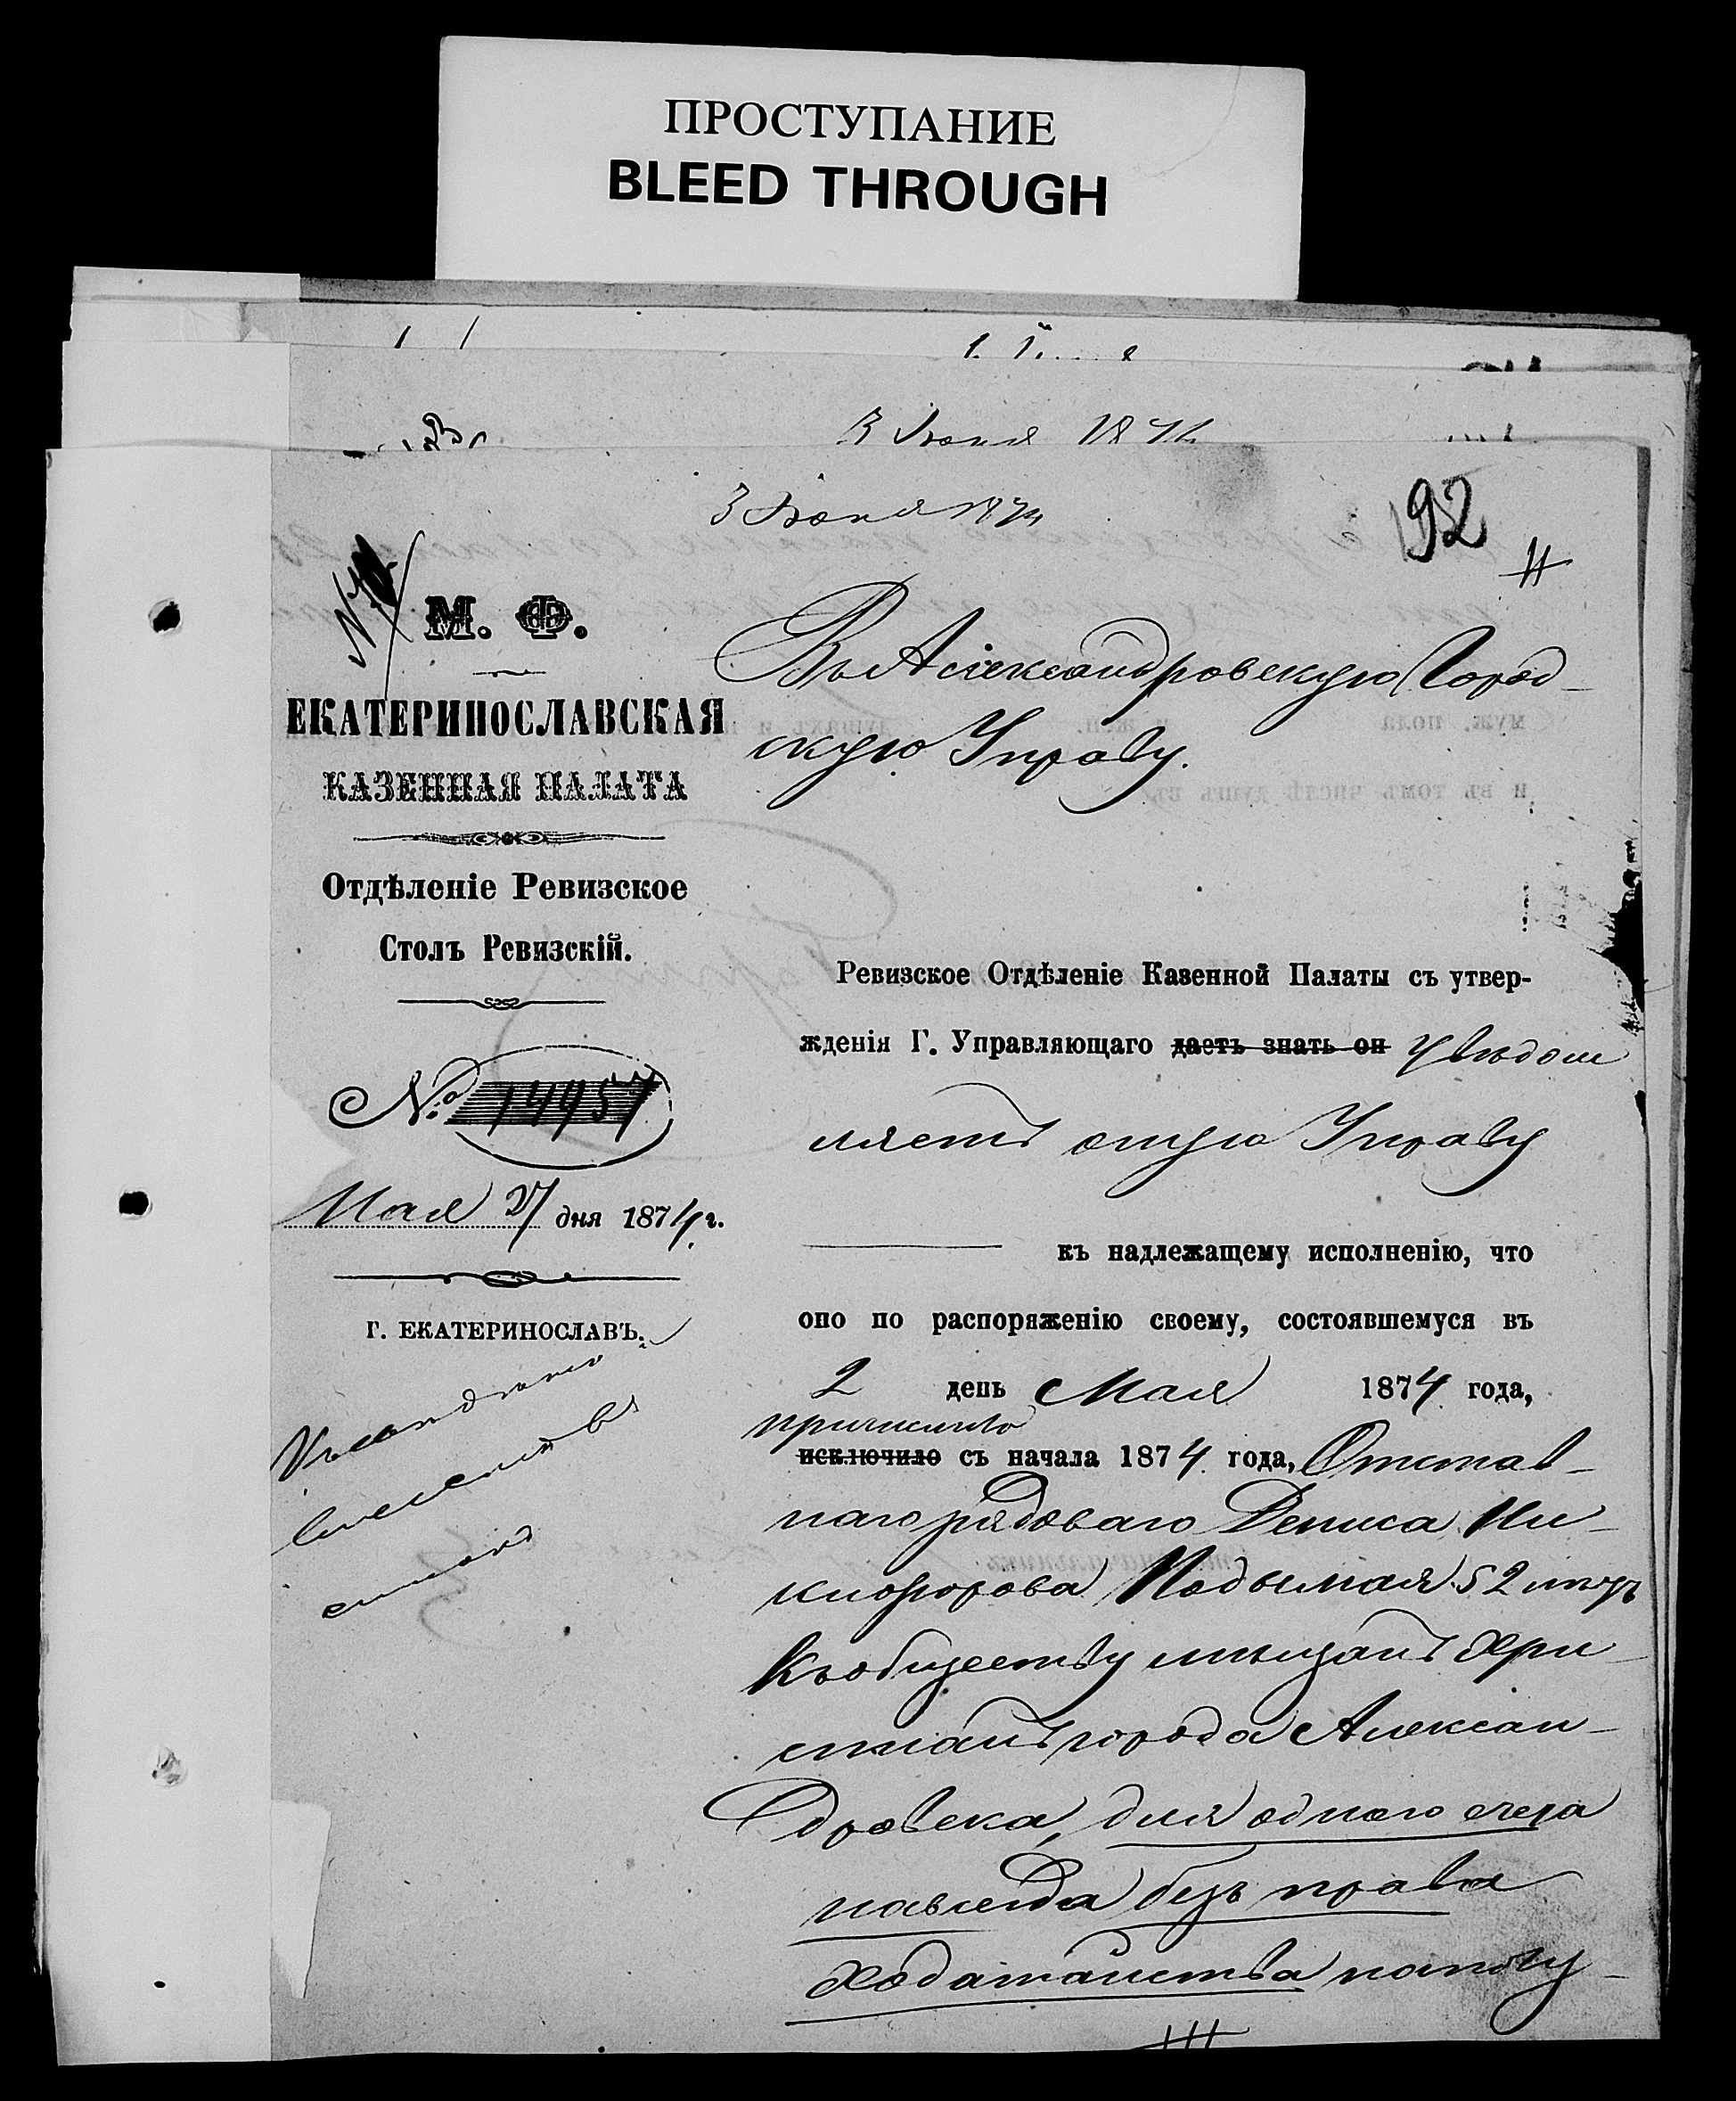 ПРОСТУПАНИЕ
BLEED THROUGH
3 Іюня 187
3 Іюня 1874
92
М. Ф.
ЕКАТЕРИНОСЛАВСКАЯ
КАЗЕННАЯ ПАЛАТА
Отдѣленіе Ревизское
Столъ Ревизскій.
№ 14957
Мая 27 дня 1874 г.
Г. ЕКАТЕРИНОСЛАВЪ.
Въ Александровскую Город-
скую Управу.
Ревизское Отдѣленіе Казенной Палаты съ утвер-
жденія Г. Управляющаго даетъ знать он увѣдом
ляетъ оную Управу
къ надлежащему исполненію, что
оно по распоряженію своему, состоявшемуся въ
2 день Мая 1874 года,
причислило
исключило съ начала 1874 года, Отстав-
наго рядоваго Дениса Ни-
кифорова 52 лѣтъ
къ обществу мѣщанъ Хри-
стіанъ города Алексан-
дровска, для одного счета
навсегда безъ права
ходатайства